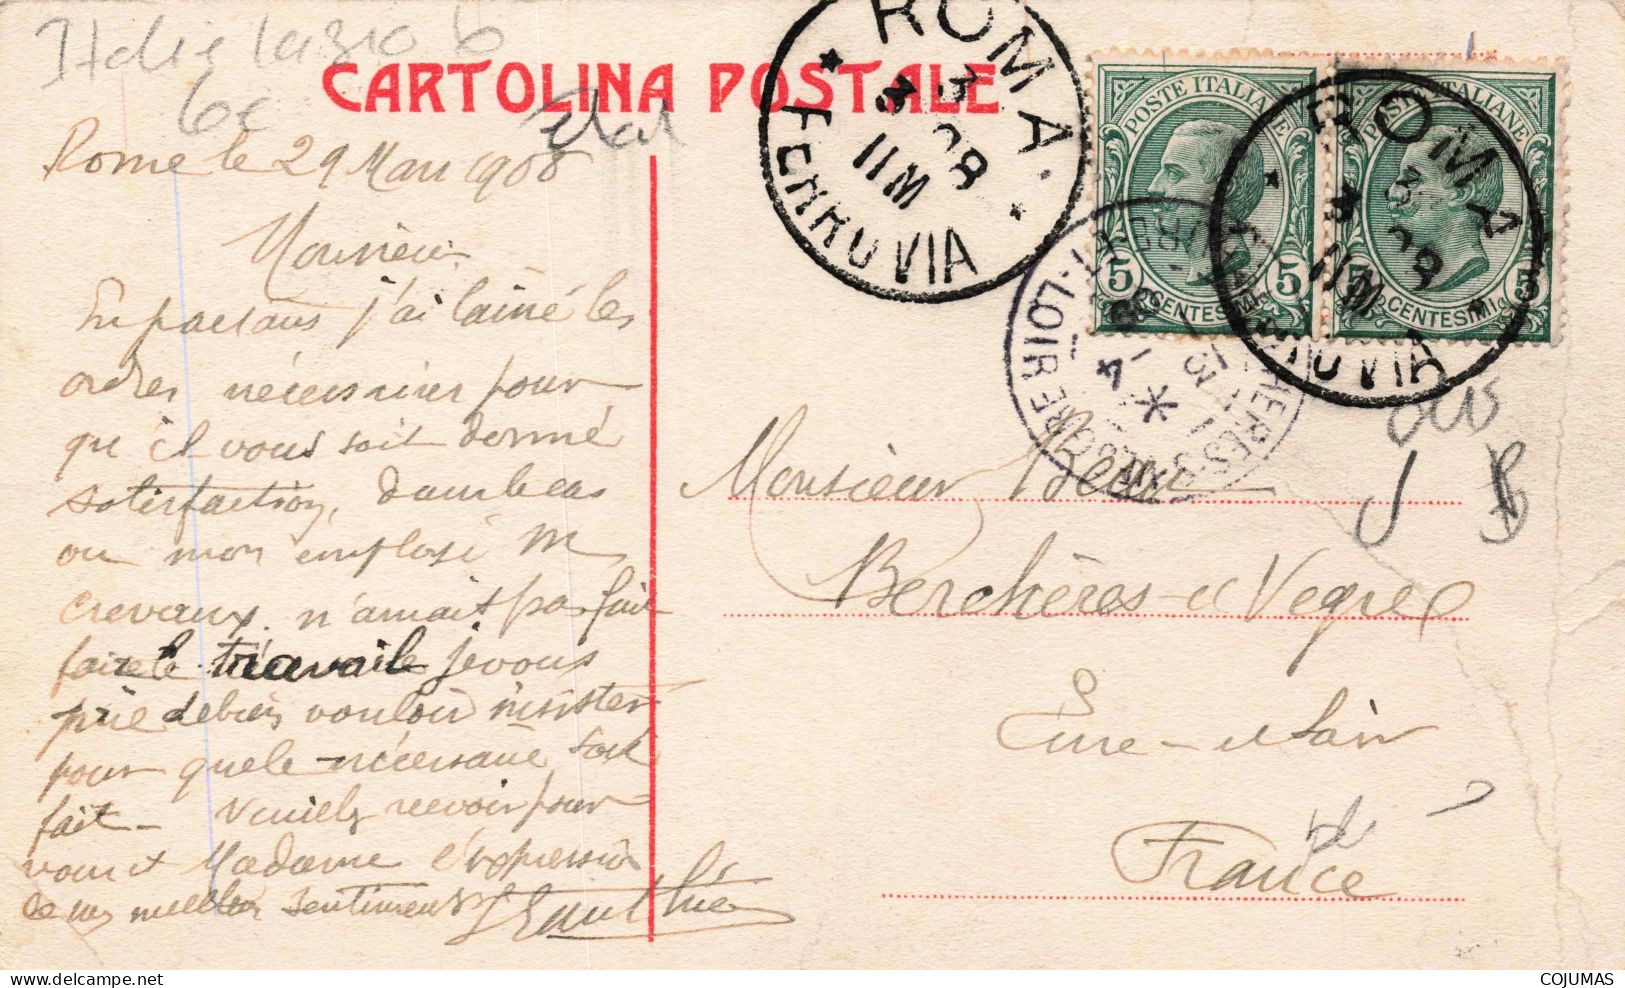 Italie Lazio b
6c
CARTOLINA POSTALE
Rome le 29 Mars 1908
Monsieur
En partant j'ai laissé les
ordres nécessaires pour
qu'il vous soit donné
satisfaction, dans le cas
ou mon employé M
Crevaux n'aurait pas fait
faire le travail je vous
prie de bien vouloir insister
pour que le nécessaire soit
fait - Veuillez recevoir pour
vous et Madame l'expression
de mes meilleurs sentiments
ROMA
3 3 08
11 M
FERROVIA
POSTE ITALIANE
5 CENTESIMI 5
POSTE ITALIANE
5 CENTESIMI 5
ROMA
11 M
FERROVIA
EURE-ET-LOIRE
Monsieur
Berchères-s/ Vegre
Eure-et-Loir
France
COJUMAS